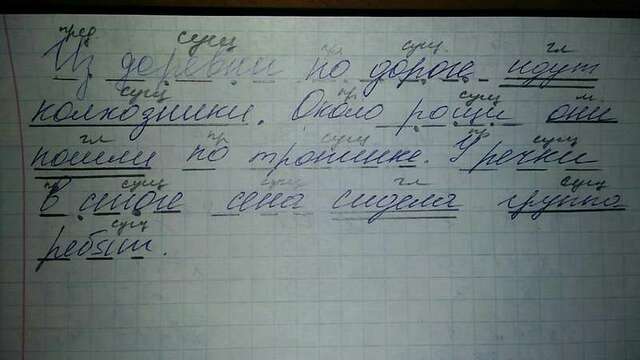 пред сущ пр. сущ. гл
Из деревни по дороге идут
сущ пр. сущ м
колхозники. Около рощи они
гл пр сущ пр сущ
пошли по тропинке. У речки
пр сущ сущ гл сущ
в стоге сена сидела группа
сущ
ребят.